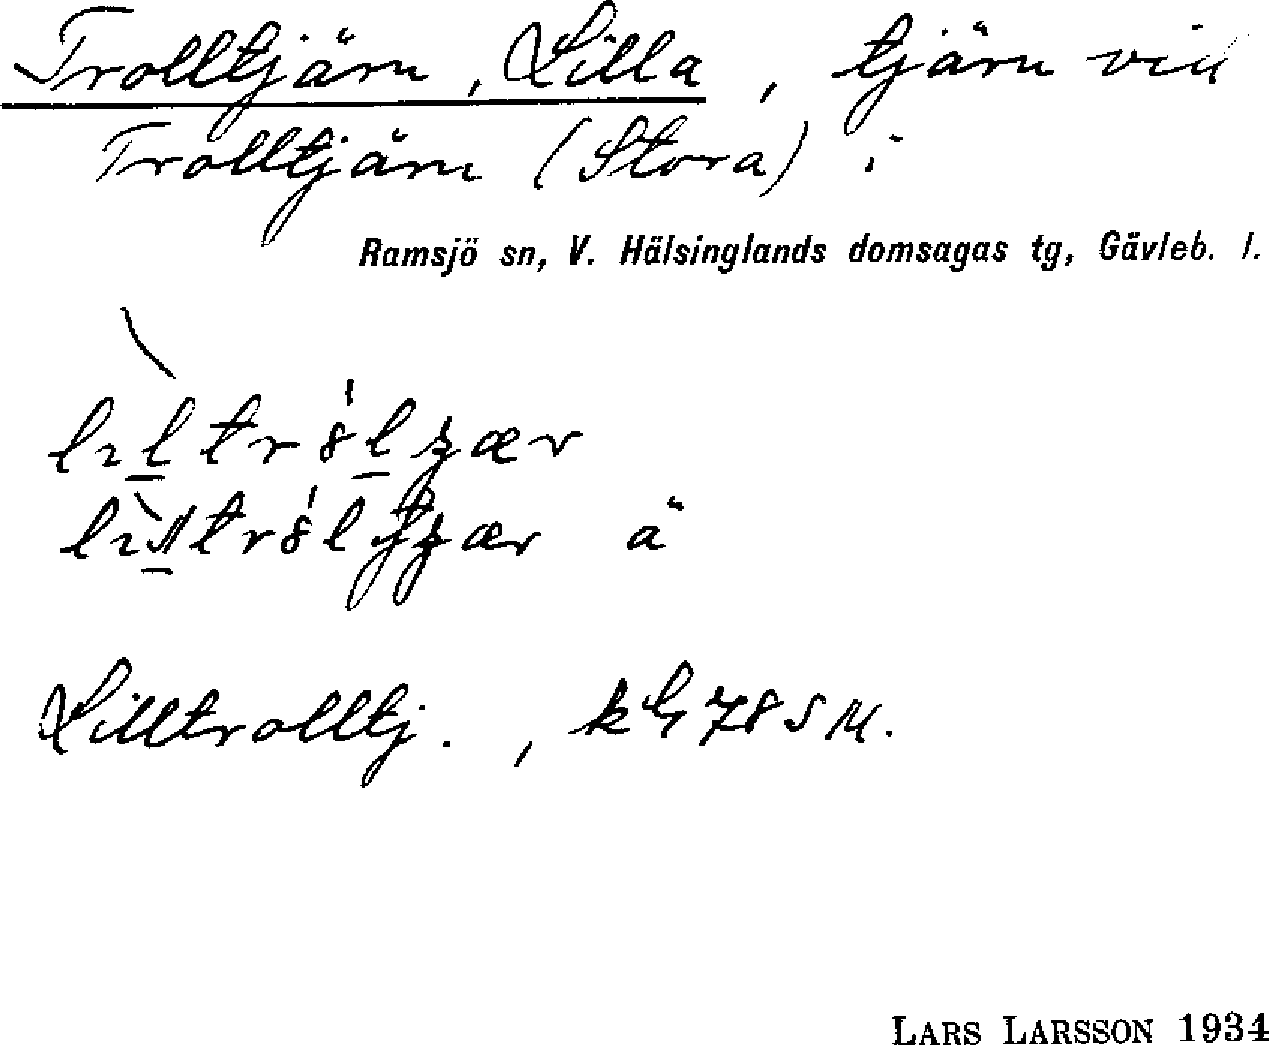 Trolltjärn, Lilla, tjärn vid
Trolltjärn (Stora) i
Ramsjö sn, V. Hälsinglands domsagas tg, Gävleb. l.
ä
Lilltrolltj., kG 78 S M.
LARS LARSSON 1934